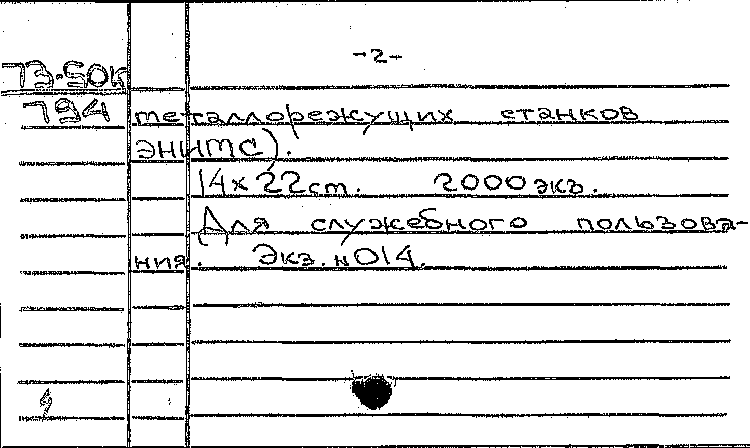 -2-
73-50к
794 металлорежущих станков
ЭНИМС).
14x22 cm. 2000 экз.
Для служебного пользова-
ния. Экз. н014.